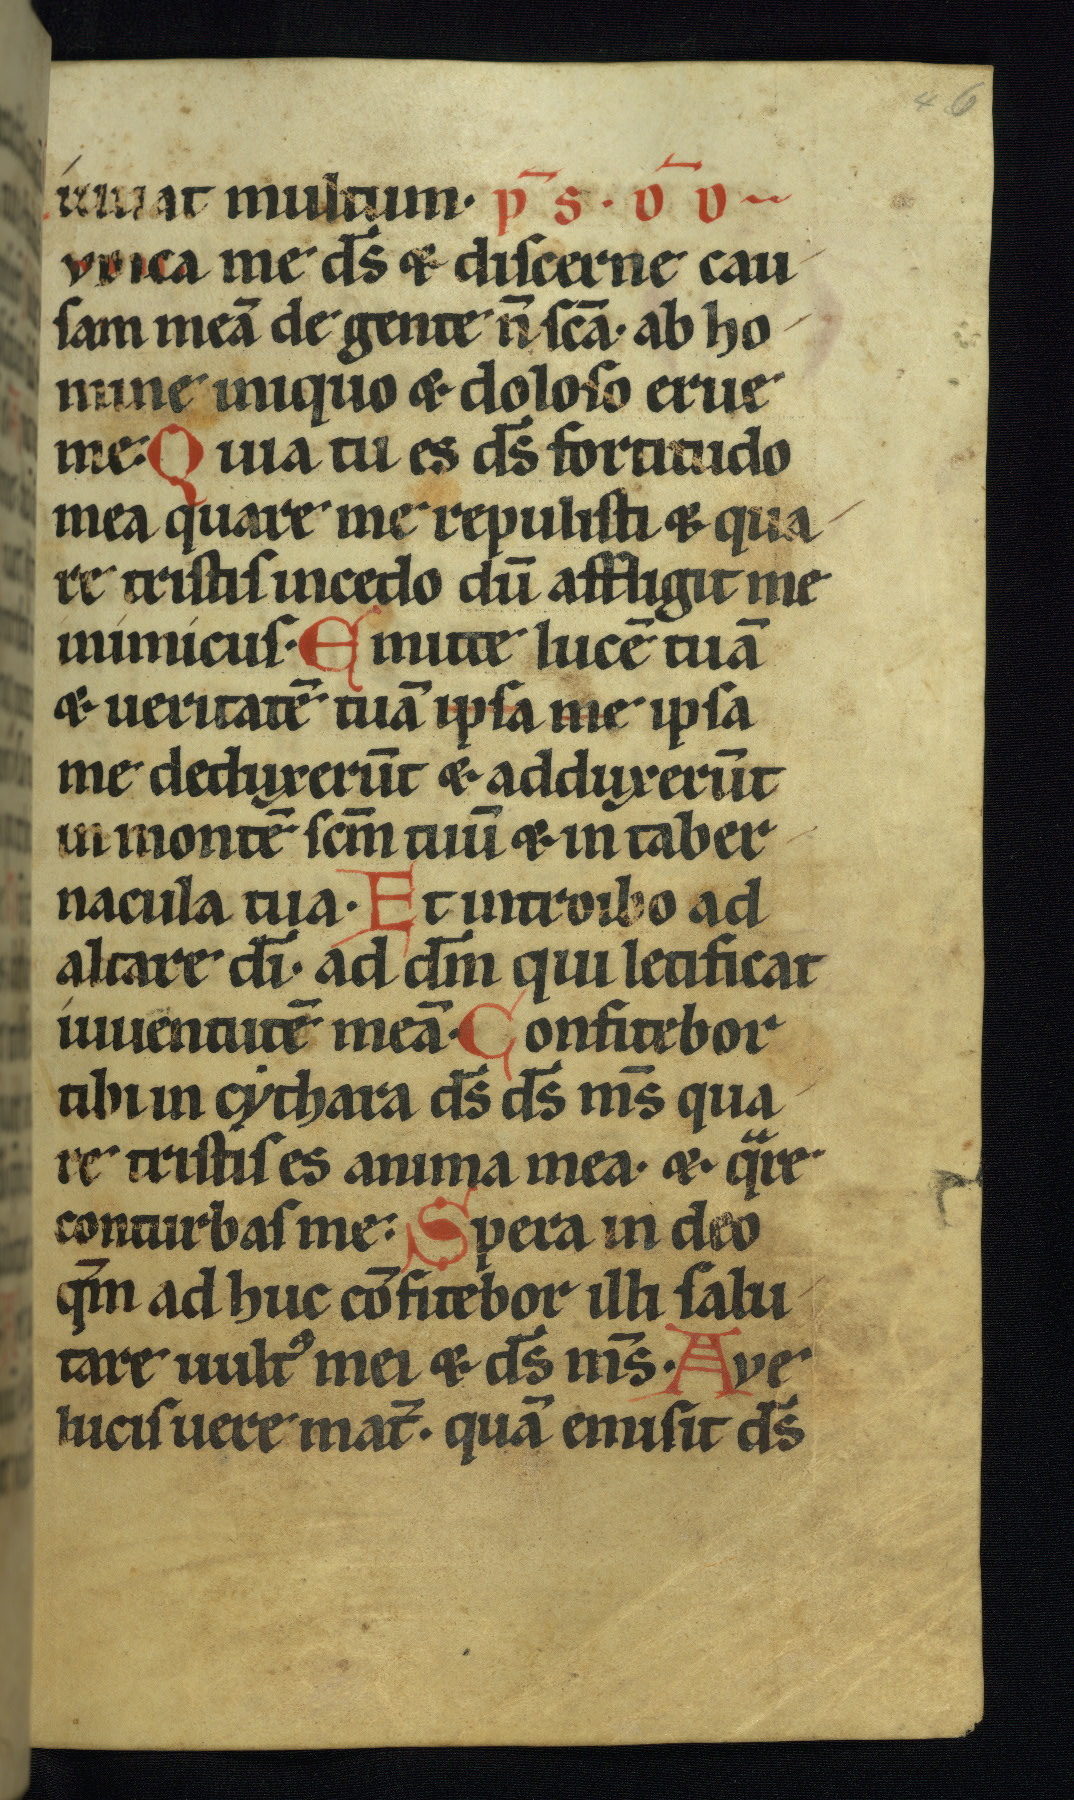 46
iuuat multum. p̄s. v̄ v
vdica me ds̄ & discerne cau
sam meā de gente n̄ scā. ab ho
mine iniquo & doloso erue
me. Quia tu es ds̄ fortitudo
mea quare me repulisti & qua
re tristis incedo dū affligit me
inimicus. Emitte lucē tuā
& ueritatē tuā ipsa me ipsa
me deduxerūt & adduxerūt
in montē scm̄ tuū & in taber
nacula tua. Et introibo ad
altare dī. ad dm̄ qui letificat
iuuentutē meā. Confitebor
tibi in cythara ds̄ ds̄ ms̄ qua
re tristis es anima mea. & qre
conturbas me. Spera in deo
qm̄ ad huc cōfitebor illi salu
tare uult⁹ mei & ds̄ ms̄. Ave
lucis uere mat̄. quā emisit ds̄